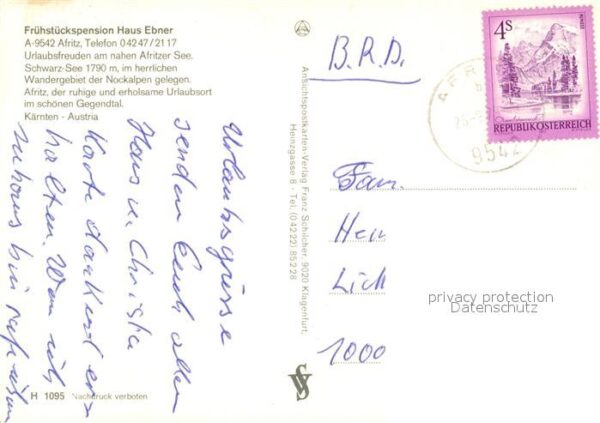 Frühstückspension Haus Ebner
A-9542 Afritz, Telefon 04247/2117
Urlaubsfreuden am nahen Afritzer See.
Schwarz-See 1790 m, im herrlichen
Wandergebiet der Nockalpen gelegen.
Afritz, der ruhige und erholsame Urlaubsort
im schönen Gegendtal.
Kärnten - Austria
Urlaubsgrüsse
senden Euch allen
Hans u. Christa
Karte dankend er-
halten. Wenn ich
zuhaus bin
H 1095 Nachdruck verboten
Ansichtspostkarten-Verlag Franz Schilcher, 9020 Klagenfurt,
Heinzgasse 8 - Tel. (04222) 85228
B.R.D.
4S
REPUBLIK ÖSTERREICH
9542
Fam.
Herr
1000
privacy protection
Datenschutz